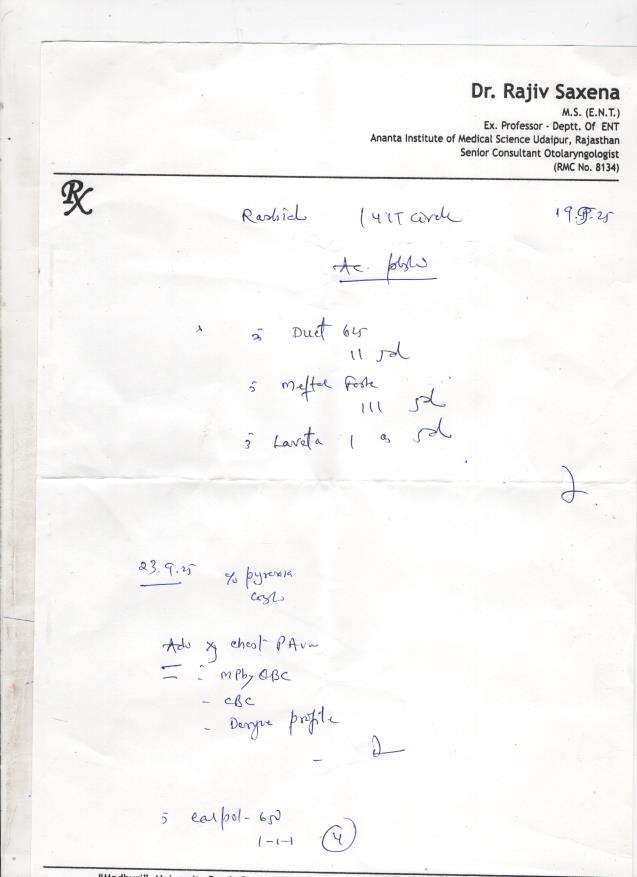 Dr. Rajiv Saxena
M.S. (E.N.T.)
Ex. Professor - Deptt. Of ENT
Ananta Institute of Medical Science Udaipur, Rajasthan
Senior Consultant Otolaryngologist
(RMC No. 8134)
Rx
Rashid
19.9.25
Ac.
Duet 625
II 5d
Meftal Forte
III 5d
Laveta 1 5d
23.9.25 c/o pyrexia
Adv chest PA
MP by QBC
- CBC
- Dengue profile
calpol - 650
1-1-1 4